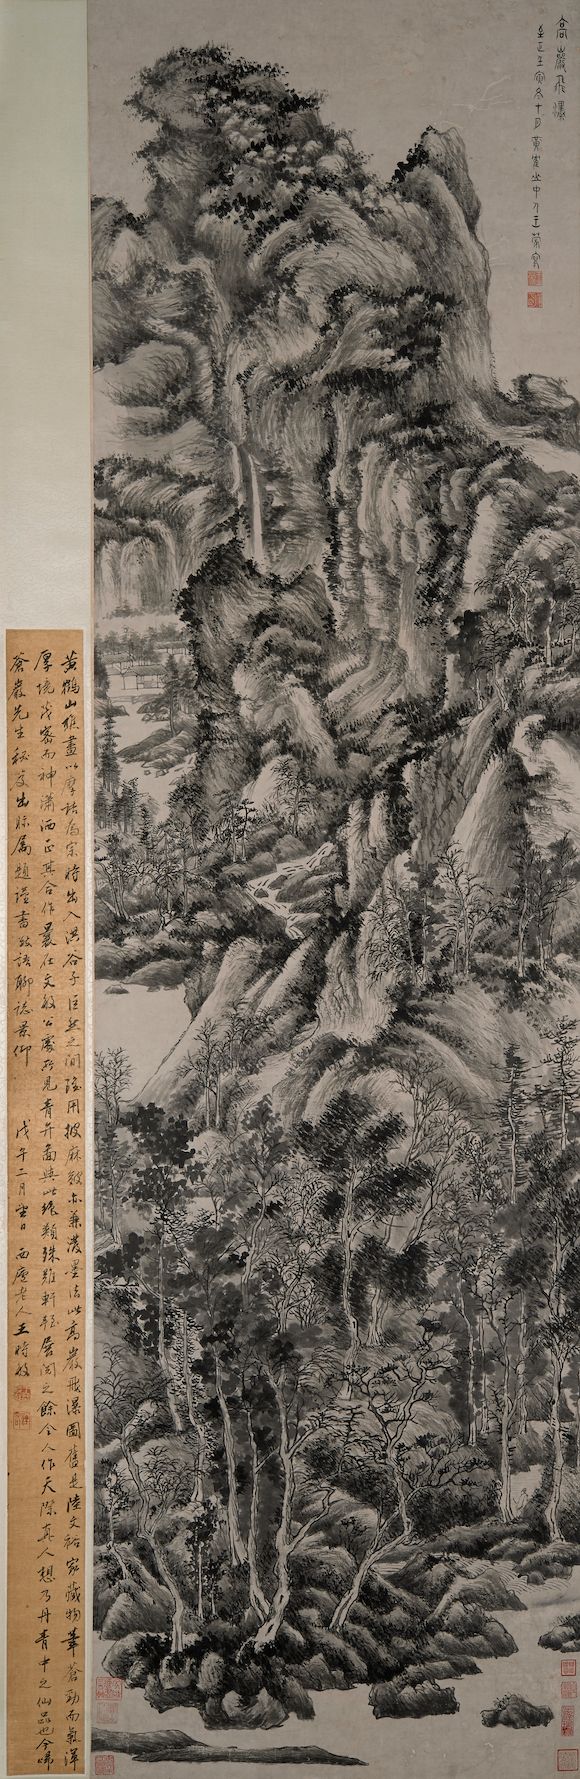 高巖飛瀑
至正壬寅冬十月黃鶴山中人王蒙寫
黃鶴山樵畫以摩詰為宗時出入洪谷子巨然之間隨用披麻皴亦兼潑墨法此高巖飛瀑圖舊是陸文裕家藏物筆蒼勁而氣渾
厚境茂密而神瀟洒正其合作曩在文敏公處所見青弁圖與此絕類殊難軒輊展閱之餘令人作天際真人想乃丹青中之仙品也今歸
蒼巖先生秘笈出际屬題謹書數語聊誌景仰 戊午二月望日 西廬老人王時敏